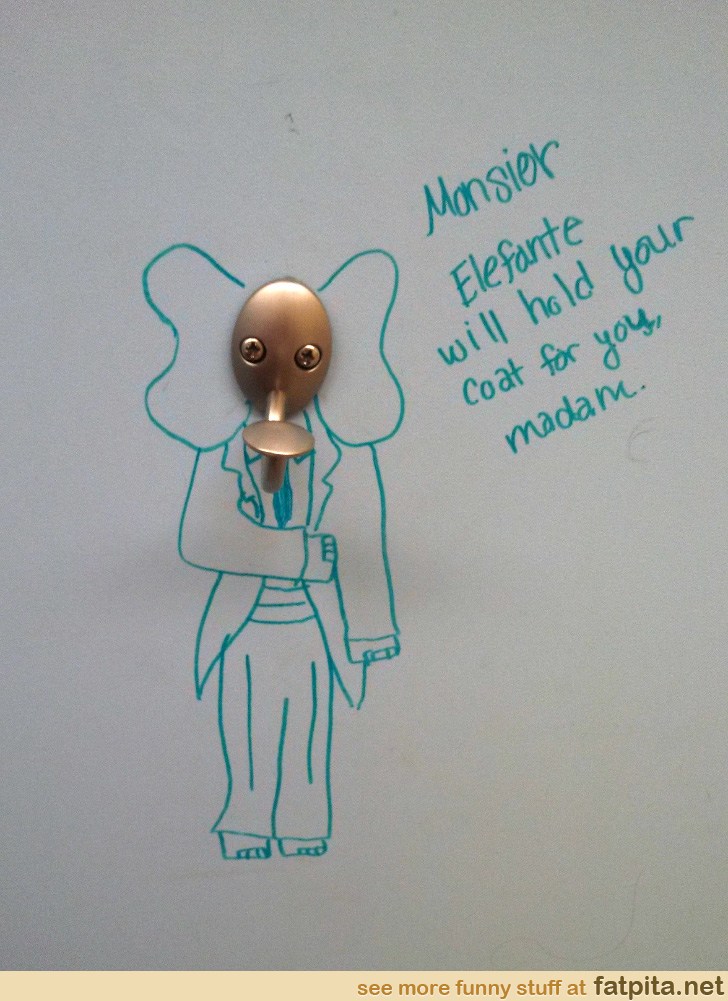 Monsier
Elefante
will hold your
coat for you,
madam.
see more funny stuff at fatpita.net